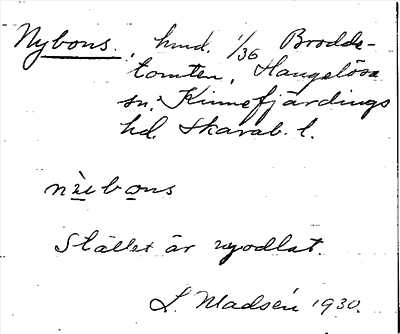 Nybons., hmd. 1/36 Brodde-
tomten, Hangelösa
sn. Kinnefjärdings
hd. Skarab. l.
nỳibons
Stället är nyodlat.
L. Madsén 1930.